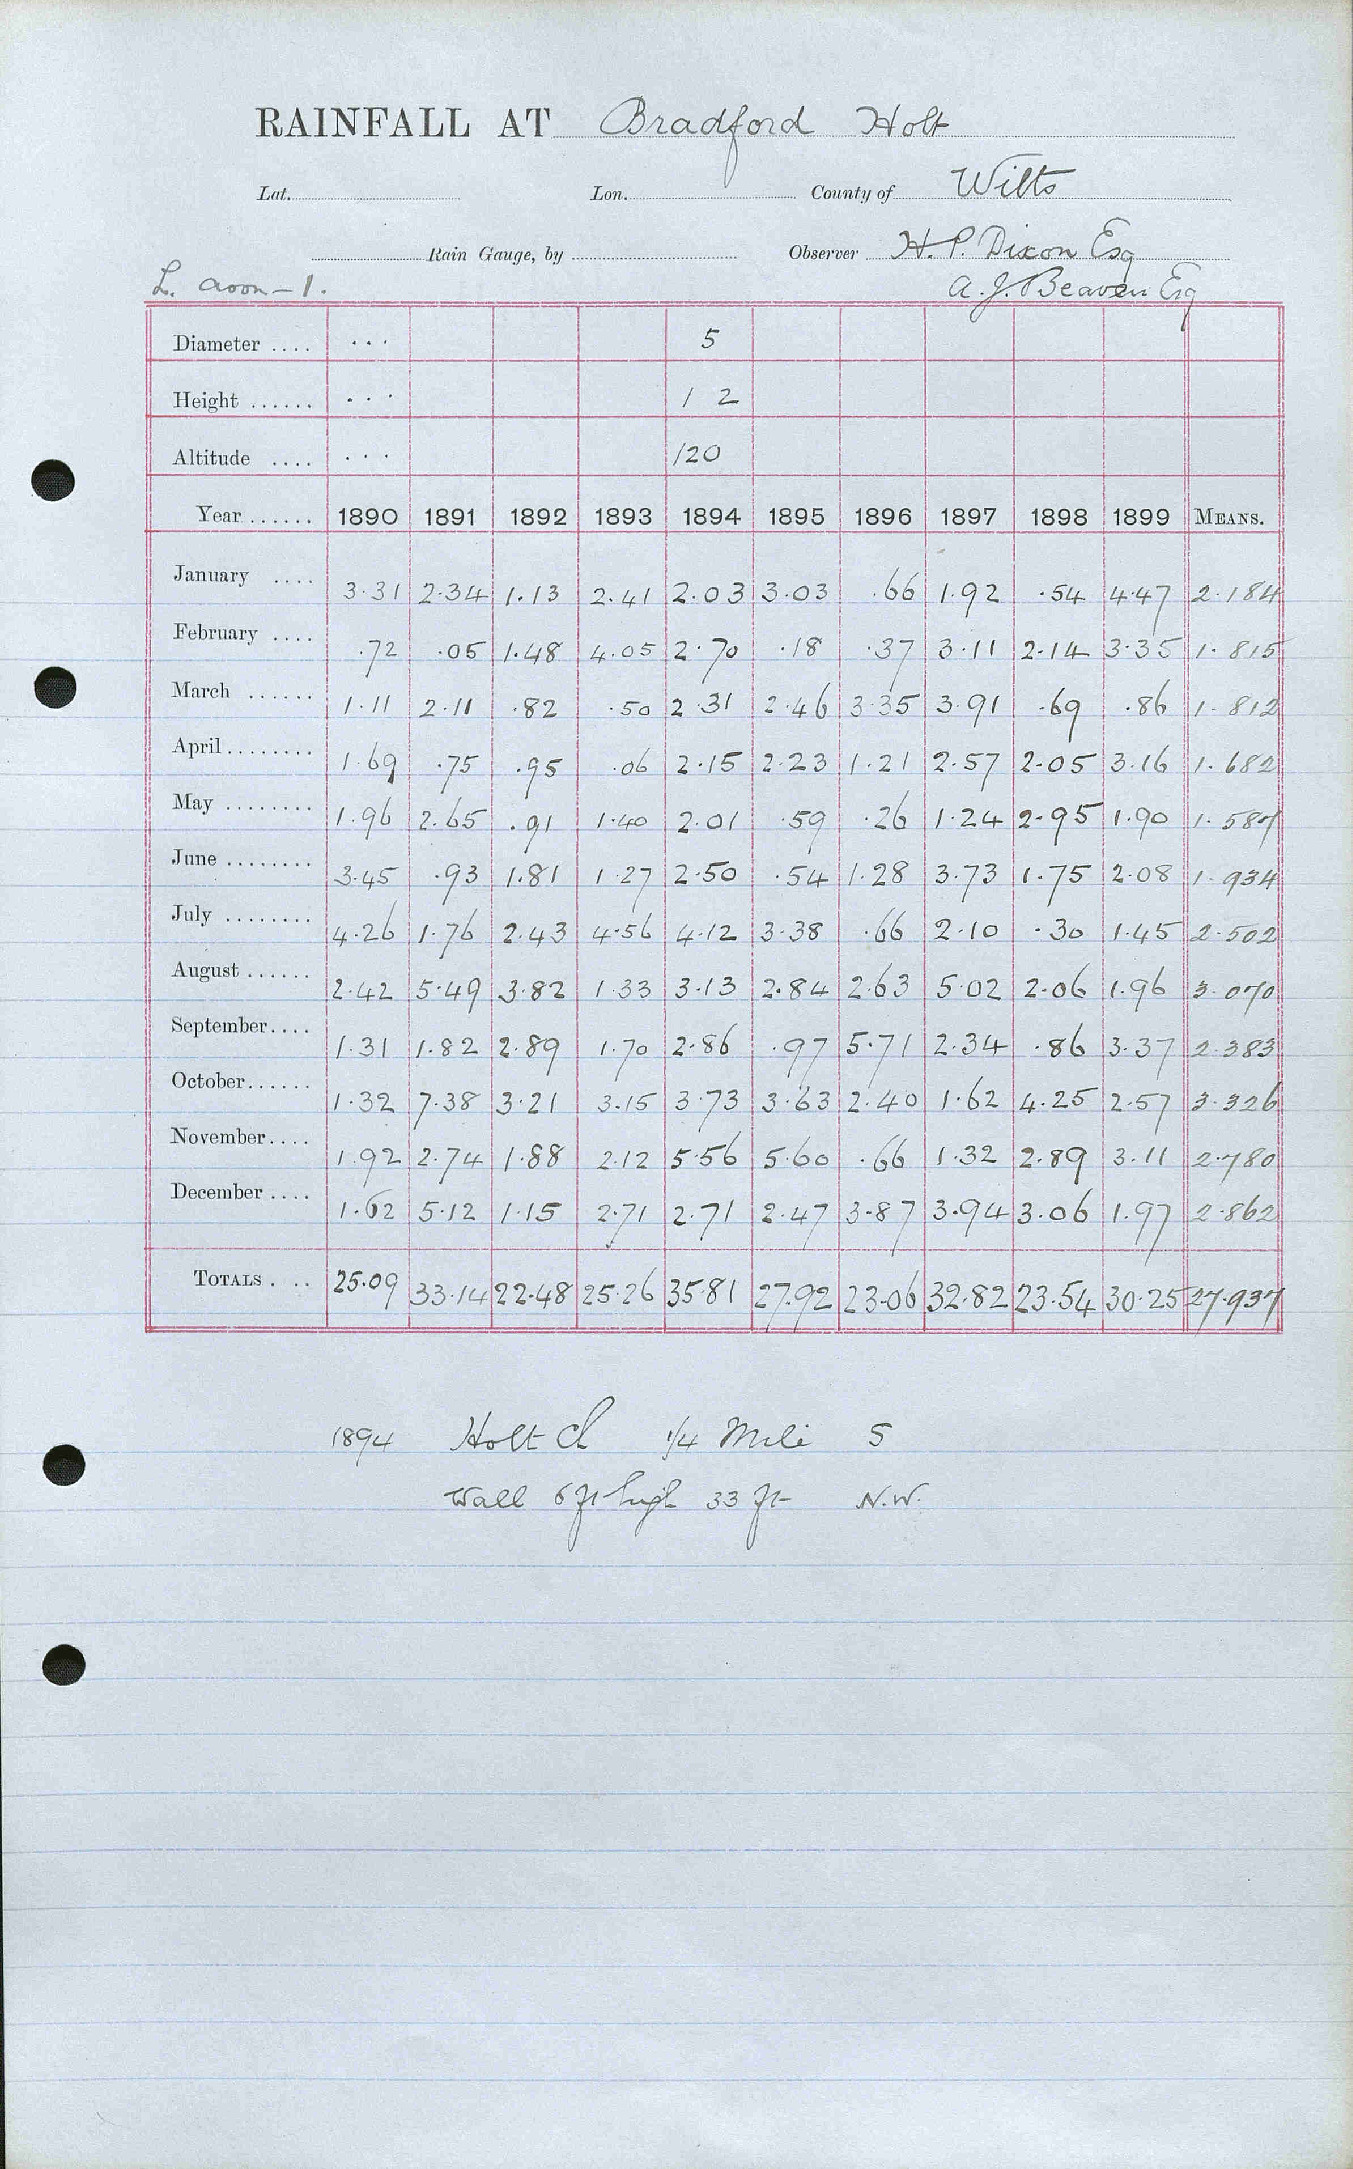 RAINFALL AT Bradford Holt
Lat. Lon. County of Wilts
Rain Gauge, by Observer H. P. Dixon Esq
L. Avon - 1. A. J. Beaven Esq
Diameter .... . . . 5
Height ...... . . . 1 2
Altitude .... . . . 120
Year ...... 1890 1891 1892 1893 1894 1895 1896 1897 1898 1899 MEANS.
January .... 3.31 2.34 1.13 2.41 2.03 3.03 .66 1.92 .54 4.47 2.184
February .... .72 .05 1.48 4.05 2.70 .18 .37 3.11 2.14 3.35 1.815
March ...... 1.11 2.11 .82 .50 2.31 2.46 3.35 3.91 .69 .86 1.812
April ........ 1.69 .75 .95 .06 2.15 2.23 1.21 2.57 2.05 3.16 1.682
May ........ 1.96 2.65 .91 1.40 2.01 .59 .26 1.24 2.95 1.90 1.587
June ........ 3.45 .93 1.81 1.27 2.50 .54 1.28 3.73 1.75 2.08 1.934
July ........ 4.26 1.76 2.43 4.56 4.12 3.38 .66 2.10 .30 1.45 2.502
August ...... 2.42 5.49 3.82 1.33 3.13 2.84 2.63 5.02 2.06 1.96 3.070
September .... 1.31 1.82 2.89 1.70 2.86 .97 5.71 2.34 .86 3.37 2.383
October ...... 1.32 7.38 3.21 3.15 3.73 3.63 2.40 1.62 4.25 2.57 3.326
November .... 1.92 2.74 1.88 2.12 5.56 5.60 .66 1.32 2.89 3.11 2.780
December .... 1.62 5.12 1.15 2.71 2.71 2.47 3.87 3.94 3.06 1.97 2.862
TOTALS . .. 25.09 33.14 22.48 25.26 35.81 27.92 23.06 32.82 23.54 30.25 27.937
1894 Holt Ch 1/4 Mile S
Wall 6 ft high 33 ft N.W.